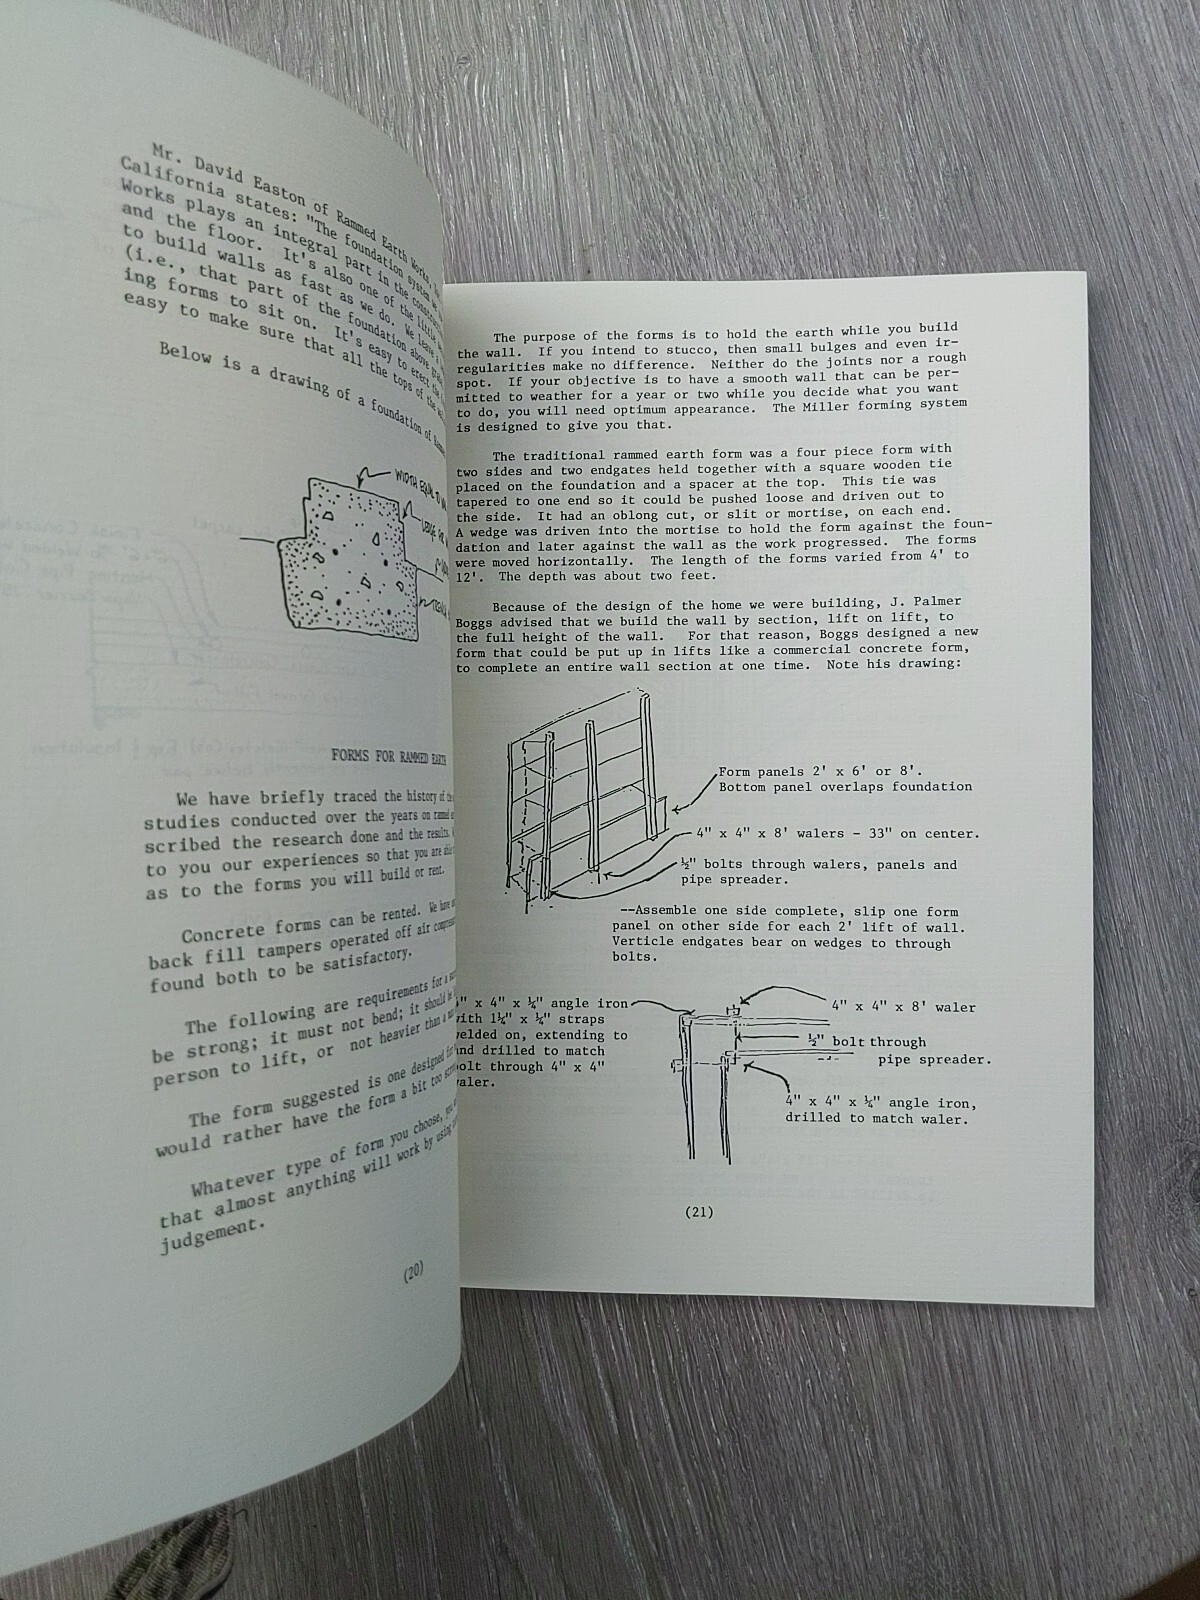 Mr. David Easton of Rammed Earth Works,
California states: "The foundation system
Works plays an integral part in the
and the floor. It's also one of the little
to build walls as fast as we do. We leave a
(i.e., that part of the foundation above
ing forms to sit on. It's easy to erect the
easy to make sure that all the tops of the
Below is a drawing of a foundation of
WIDTH EQUAL TO
FORMS FOR RAMMED EARTH
We have briefly traced the history of
studies conducted over the years on
scribed the research done and the results.
to you our experiences so that you are
as to the forms you will build or rent.
Concrete forms can be rented. We have
back fill tampers operated off air
found both to be satisfactory.
The following are requirements for a
be strong; it must not bend; it should be
person to lift, or not heavier than a
The form suggested is one designed
would rather have the form a bit too
Whatever type of form you choose,
that almost anything will work by using
judgement.
(20)
The purpose of the forms is to hold the earth while you build
the wall. If you intend to stucco, then small bulges and even ir-
regularities make no difference. Neither do the joints nor a rough
spot. If your objective is to have a smooth wall that can be per-
mitted to weather for a year or two while you decide what you want
to do, you will need optimum appearance. The Miller forming system
is designed to give you that.
The traditional rammed earth form was a four piece form with
two sides and two endgates held together with a square wooden tie
placed on the foundation and a spacer at the top. This tie was
tapered to one end so it could be pushed loose and driven out to
the side. It had an oblong cut, or slit or mortise, on each end.
A wedge was driven into the mortise to hold the form against the foun-
dation and later against the wall as the work progressed. The forms
were moved horizontally. The length of the forms varied from 4' to
12'. The depth was about two feet.
Because of the design of the home we were building, J. Palmer
Boggs advised that we build the wall by section, lift on lift, to
the full height of the wall. For that reason, Boggs designed a new
form that could be put up in lifts like a commercial concrete form,
to complete an entire wall section at one time. Note his drawing:
Form panels 2' x 6' or 8'.
Bottom panel overlaps foundation
4" x 4" x 8' walers - 33" on center.
½" bolts through walers, panels and
pipe spreader.
--Assemble one side complete, slip one form
panel on other side for each 2' lift of wall.
Verticle endgates bear on wedges to through
bolts.
" x 4" x ¼" angle iron
with 1¼" x ¼" straps
welded on, extending to
and drilled to match
bolt through 4" x 4"
waler.
4" x 4" x 8' waler
½" bolt through
pipe spreader.
4" x 4" x ¼" angle iron,
drilled to match waler.
(21)